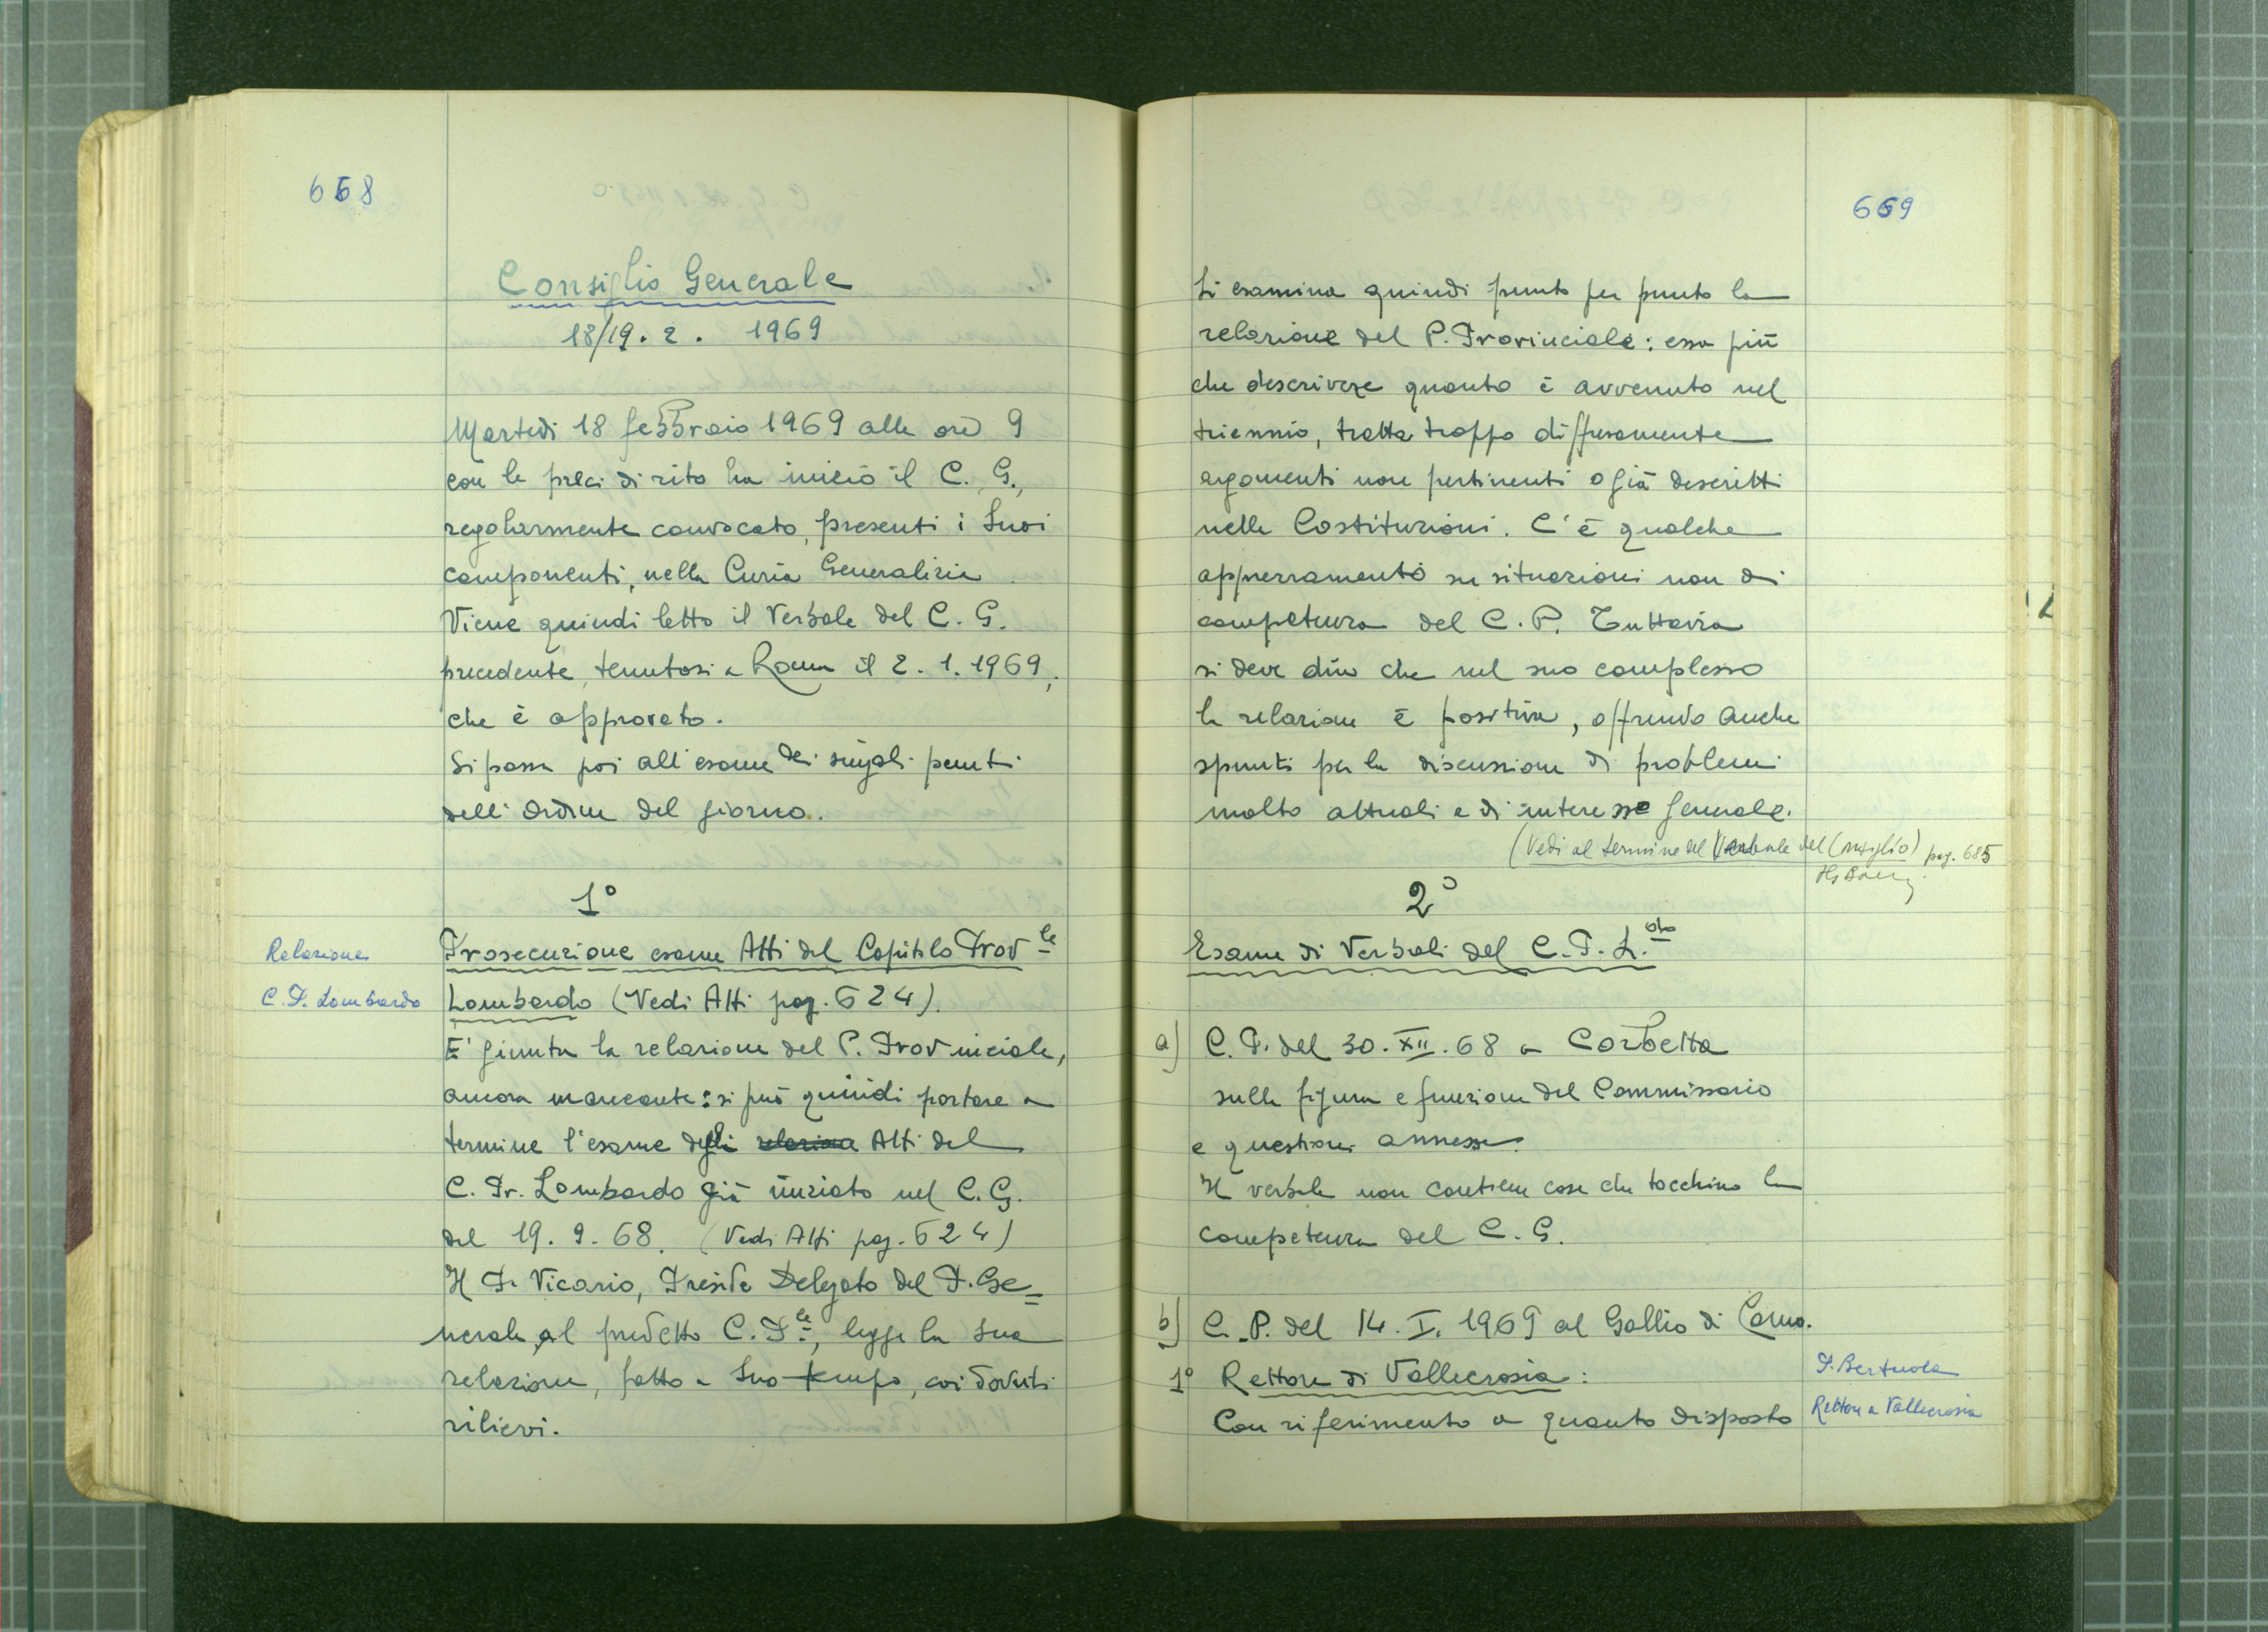 668
Consiglio Generale
18/19. 2. 1969
Martedì 18 febbraio 1969 alle ore 9
con le preci di rito ha inizio il C. G.,
regolarmente convocato, presenti i suoi
componenti, nella Curia Generalizia
Viene quindi letto il verbale del C. G.
precedente, tenutosi a Roma il 2. 1. 1969,
che è approvato.
Si passa poi all'esame dei singoli punti
dell'ordine del giorno.
1°
Relazione
C. P. Lombardo
Prosecuzione esame Atti del Capitolo Prov.le
Lombardo (Vedi Atti pag. 624).
E' giunta la relazione del P. Provinciale,
ancora mancante: si può quindi portare a
termine l'esame degli relazione Atti del
C. Pr. Lombardo già iniziato nel C. G.
del 19. 9. 68. (Vedi Atti pag. 624)
Il P. Vicario, Preside Delegato del P. Ge=
nerale, al predetto C. P.le, legge la sua
relazione, fatta a suo tempo, coi dovuti
rilievi.
669
Si esamina quindi punto per punto la
relazione del P. Provinciale: essa più
che descrivere quanto è avvenuto nel
triennio, tratta troppo diffusamente
argomenti non pertinenti o già descritti
nelle Costituzioni. C'è qualche
apprezzamento su situazioni non di
competenza del C. P. Tuttavia
si deve dire che nel suo complesso
la relazione è positiva, offrendo anche
spunti per la discussione di problemi
molto attuali e di interesse generale.
(Vedi al termine del Verbale del Consiglio) pag. 685
2°
Esame di Verbali del C. P. L.do
a) C. P. del 30. XII. 68 a Corbetta
sulla figura e funzione del Commissario
e questioni annesse.
Il verbale non contiene cose che tocchino la
competenza del C. G.
b) C. P. del 14. I. 1969 al Gallio di Como.
1° Rettore di Vallecrosia:
P. Bertuola
Rettore a Vallecrosia
Con riferimento a quanto disposto